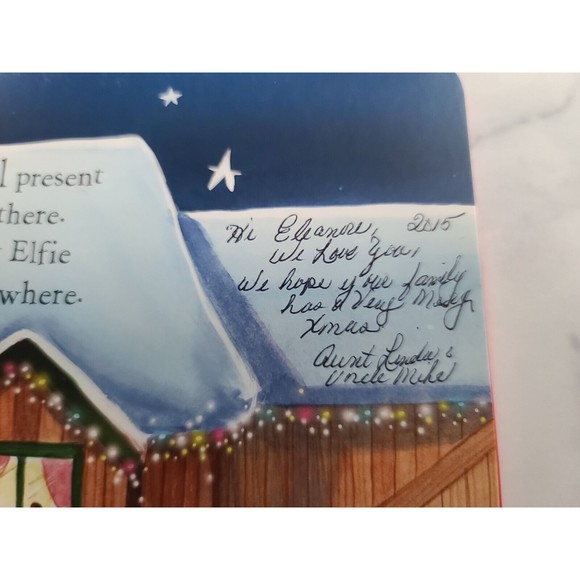 l present
there.
Elfie
where.
Hi Eleanore, 2015
We Love You,
We hope your family
has a Very Merry
Xmas
Aunt Linda &
Uncle Mike